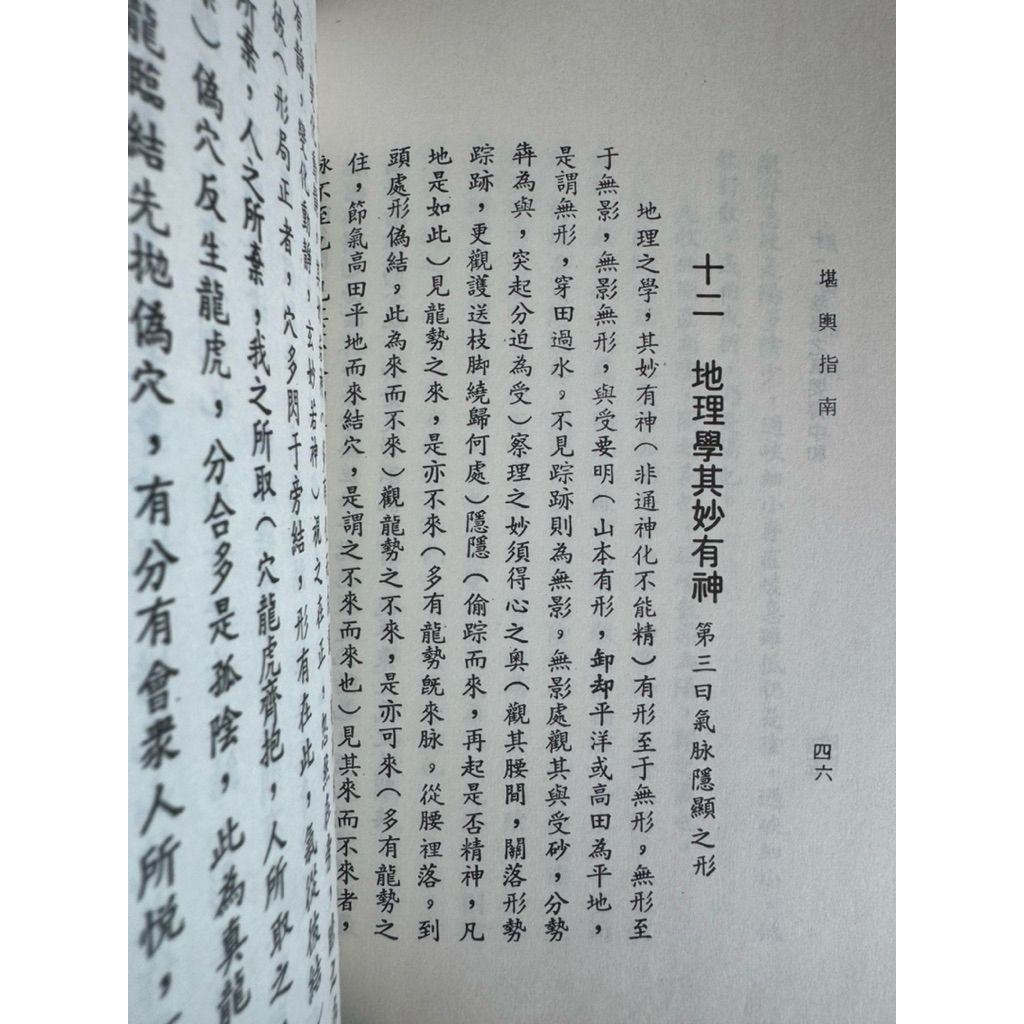 堪輿指南
四六
十二 地理學其妙有神 第三曰氣脉隱顯之形
地理之學，其妙有神（非通神化不能精）有形至于無形。無形至
于無影，無影無形，與受要明（山本有形，卸却平洋或高田為平地，
是謂無形，穿田過水。不見踪跡則為無影。無影處觀其與受砂，分勢
犇為與，突起分迫為受）察理之妙須得心之奧（觀其腰間，關落形勢
踪跡，更觀護送枝脚繞歸何處）隱隱（偷踪而來，再起是否精神，凡
地是如此）見龍勢之來，是亦不來（多有龍勢旣來脉。從腰裡落。到
頭處形偽結。此為來而不來）觀龍勢之不來，是亦可來（多有龍勢之
住，節氣高田平地而來結穴，是謂之不來而來也）見其來而不來者，
永不至也
有靜，變化動靜，玄妙若神）視之在正，
彼（形局正者，穴多閃于旁結，形有在此，氣從彼結）
所棄，人之所棄，我之所取（穴龍虎齊抱，人所取之
）偽穴反生龍虎，分合多是孤陰，此為真龍
龍臨結先拋偽穴，有分有會衆人所悅，